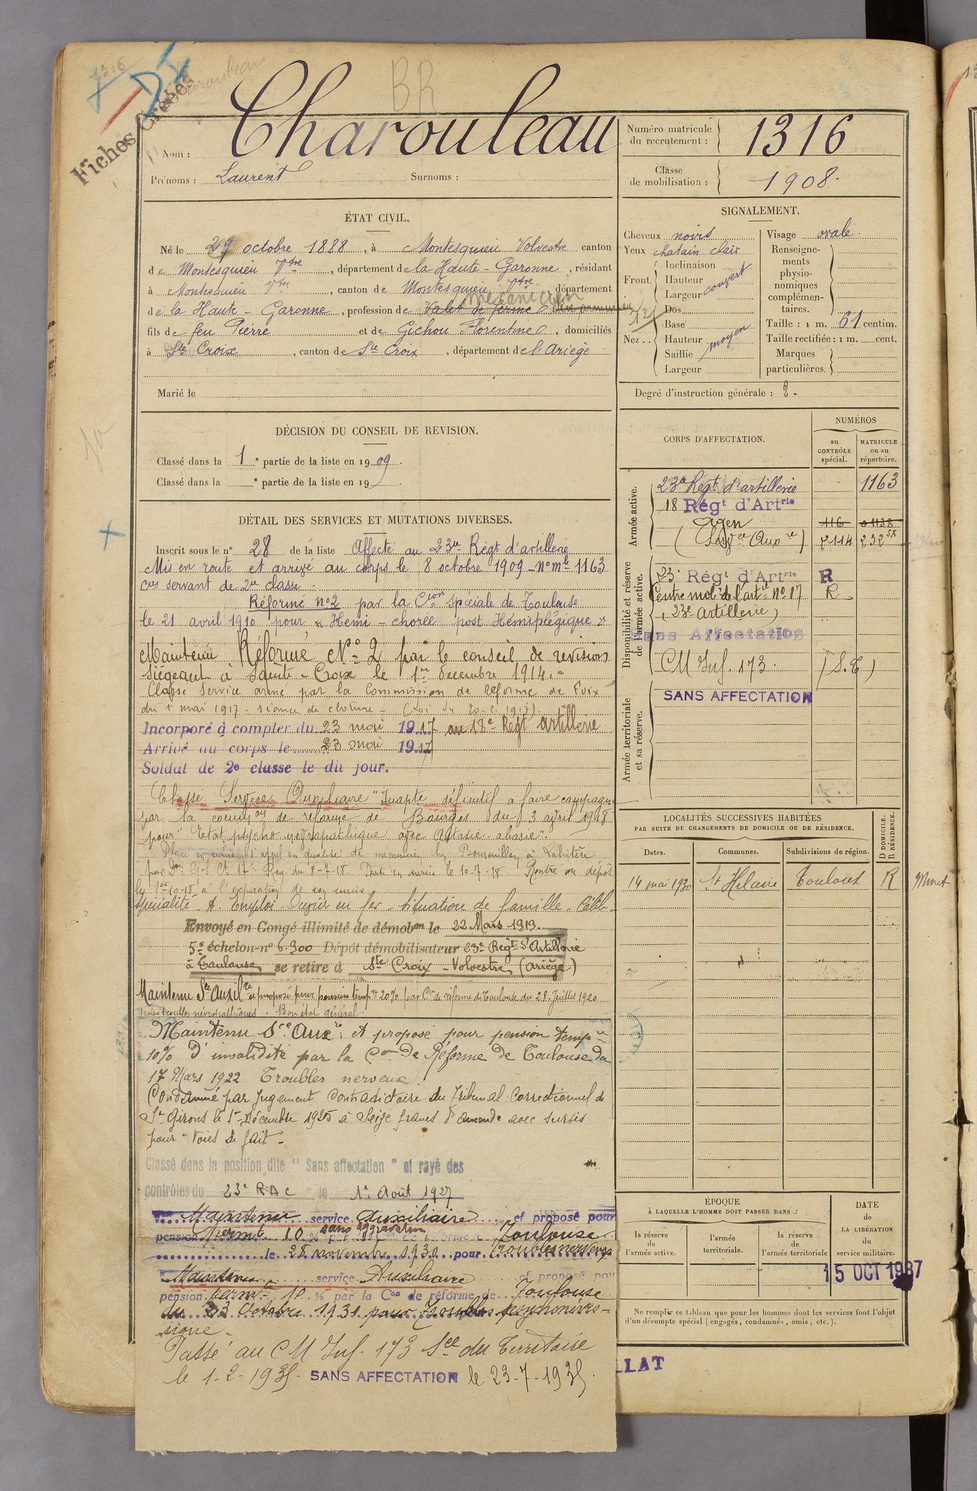 1316
BR
Fiches Créées
Nom : Charouleau
Prénoms : Laurent Surnoms :
Numéro matricule du recrutement : 1316
Classe de mobilisation : 1908.
ÉTAT CIVIL.
Né le 29 octobre 1888, à Montesquieu Volvestre canton
de Montesquieu Vtre, département de la Haute-Garonne, résidant
à Montesquieu Vtre, canton de Montesquieu Vtre, département
mécanicien
de la Haute-Garonne, profession de Valet de ferme
fils de feu Pierre et de Gichou Florentine, domiciliés
à Ste Croix, canton de Ste Croix, département de l'Ariège
Marié le
SIGNALEMENT.
Cheveux noirs
Yeux chatain clair
Front. Inclinaison
Hauteur couvert
Largeur
Nez... Dos
Base
Hauteur moyen
Saillie
Largeur
Visage ovale
Renseignements physionomiques complémentaires.
Taille : 1 m. 61 centim.
Taille rectifiée : 1 m. cent.
Marques particulières.
Degré d'instruction générale : 2.
DÉCISION DU CONSEIL DE REVISION.
Classé dans la 1e partie de la liste en 1909.
Classé dans la e partie de la liste en 19
DÉTAIL DES SERVICES ET MUTATIONS DIVERSES.
Inscrit sous le n° 28 de la liste Affecté au 23e Régt d'artillerie
Mis en route et arrivé au corps le 8 octobre 1909 - N° mle 1163
servant de 2e classe.
Réformé n°2 par la Cion spéciale de Toulouse
le 21 avril 1910 pour « Hémi-chorée post Hémiplégique »
Maintenu Réformé N°2 par le conseil de revision
siégeant à Sainte-Croix le 1er décembre 1914.
Classé service armé par la Commission de réforme de Foix
du 1er mai 1917 - séance de clôture - (Loi du 20-2-1917)
Incorporé à compter du 23 mai 1917 au 18e Régt artillerie
Arrivé au corps le 23 mai 1917
Soldat de 2e classe le dit jour.
Classé Services Auxiliaire "Inapte définitif à faire campagne
par la de réforme de Bourges du 3 avril 1918
pour "Etat psycho névropathique avec Astasie abasie".
Spécialité - A. Emploi - Ouvrier en fer - Situation de famille - Célib
Envoyé en Congé illimité de démobon le 22 Mars 1919.
5e échelon n° 6.900 Dépôt démobilisateur 23e Régt d'Artillerie
à Toulouse se retire à Ste Croix-Volvestre (Ariège)
Maintenu Sce Auxilre et proposé pour pension tempre 20% par Con de réforme de Toulouse du 28 Juillet 1920
pour troubles névropathiques. Bon état général.
Maintenu Sce Auxre et proposé pour pension tempre
10% d'invalidité par la Con de Réforme de Toulouse du
17 Mars 1922 Troubles nerveux.
Condamné par Jugement Contradictoire du Tribunal Correctionnel de
St Girons le 1er Décembre 1925 à Seize francs d'amende avec sursis
pour "Voies de fait".
Classé dans la position dite "Sans affectation" et rayé des
contrôles du 23e RAC le 1er Août 1927
Maintenu service Auxiliaire et proposé pour
sans aggravation
pension permte 10 % par la Con de réforme de Toulouse
le 28 novembre 1930 pour troubles nerveux
Maintenu service Auxiliaire et proposé pour
pension permte 10 % par la Con de réforme de Toulouse
du 23 Octobre 1931 pour Troubles psychonévro-
sique.
Passé au CM Inf. 173 Sce du Territoire
le 1-2-1935. SANS AFFECTATION le 23-7-1935.
CORPS D'AFFECTATION.
NUMÉROS
au CONTRÔLE spécial.
MATRICULE ou au répertoire.
Armée active.
23e Régt d'artillerie 1163
18 Régt d'Artrie
Agen 116
(Serv ce Auxre) 2114 232
Disponibilité et réserve de l'armée active.
23e Régt d'Artrie R
Centre mob. de l'artie N° 17 R
(23e artillerie)
Sans Affectation
CM Inf. 173. (S.T)
Armée territoriale et sa réserve.
SANS AFFECTATION
LOCALITÉS SUCCESSIVES HABITÉES
PAR SUITE DE CHANGEMENTS DE DOMICILE OU DE RÉSIDENCE.
Dates. Communes. Subdivisions de région. D DOMICILE. R RÉSIDENCE.
14 mai 1930 St Hilaire Toulouse R Muret
ÉPOQUE
À LAQUELLE L'HOMME DOIT PASSER DANS :
la réserve de l'armée active. l'armée territoriale. la réserve de l'armée territoriale
DATE de LA LIBÉRATION du service militaire.
15 OCT 1937
Ne remplir ce tableau que pour les hommes dont les services font l'objet
d'un décompte spécial (engagés, condamnés, omis, etc.).
LLAT